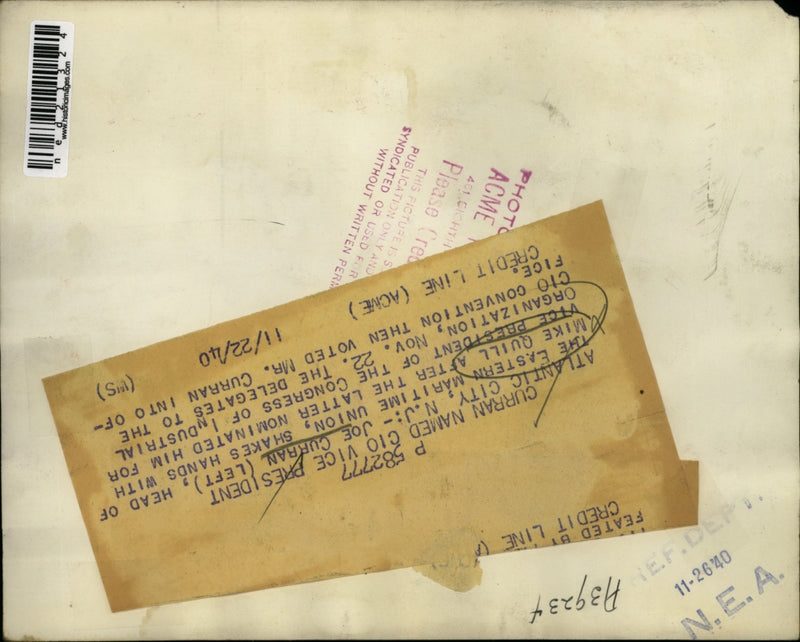 ned21324
www.historicimages.com
PHOTO
ACME
461 EIGHTH
Please Cred
THIS PICTURE IS S
PUBLICATION ONLY AND
SYNDICATED OR USED FOR
WITHOUT WRITTEN PERM
FEATED BY
CREDIT LINE (A
P 582777
CURRAN NAMED CIO VICE PRESIDENT
ATLANTIC CITY, N.J:- JOE CURRAN (LEFT), HEAD OF
THE EASTERN MARITIME UNION, SHAKES HANDS WITH
MIKE QUILL AFTER THE LATTER NOMINATED HIM FOR
VICE PRESIDENT OF THE CONGRESS OF INDUSTRIAL
ORGANIZATION, NOV. 22. THE DELEGATES TO THE
CIO CONVENTION THEN VOTED MR. CURRAN INTO OF-
FICE.
CREDIT LINE (ACME) 11/22/40 (WS)
REF. DEPT.
11-26'40
N.E.A.
A39234